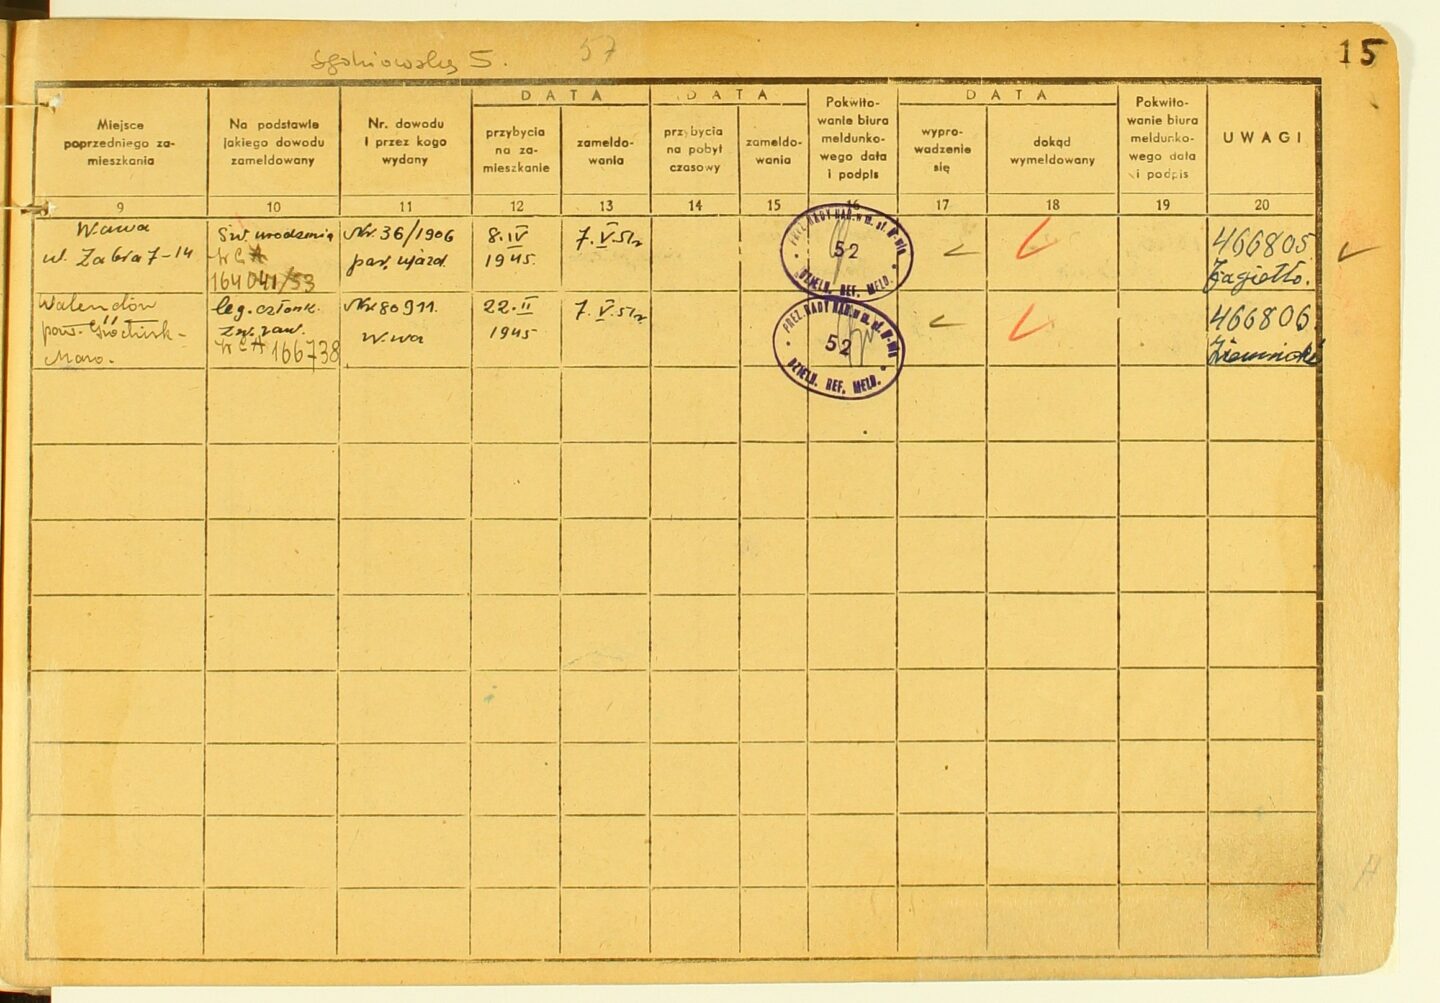 S. 57
15
DATA
DATA
DATA
Miejsce poprzedniego za-mieszkania
Na podstawie jakiego dowodu zameldowany
Nr. dowodu i przez kogo wydany
przybycia na za-mieszkanie
zameldo-wania
przybycia na pobyt czasowy
zameldo-wania
Pokwito-wanie biura meldunko-wego data i podpis
wypro-wadzenie się
dokąd wymeldowany
Pokwito-wanie biura meldunko-wego data i podpis
UWAGI
9 10 11 12 13 14 15 16 17 18 19 20
Wawa
ul. Ząbia 7-14
Św. urodzenia
164041/53
Nr. 36/1906
par. ujazd
8.IV
1945.
7.V.51r
PREZ. RADY NAR. w m. st. W-wie
52
DZIELN. REF. MELD.
466805
Jagiełło.
Walendów
pow. Grodzisk-
Mazo.
leg. członk.
zw. zaw.
166738
Nr 80911.
W-wa
22.II
1945
7.V.51r
PREZ. RADY NAR. w m. st. W-wie
52
DZIELN. REF. MELD.
466806